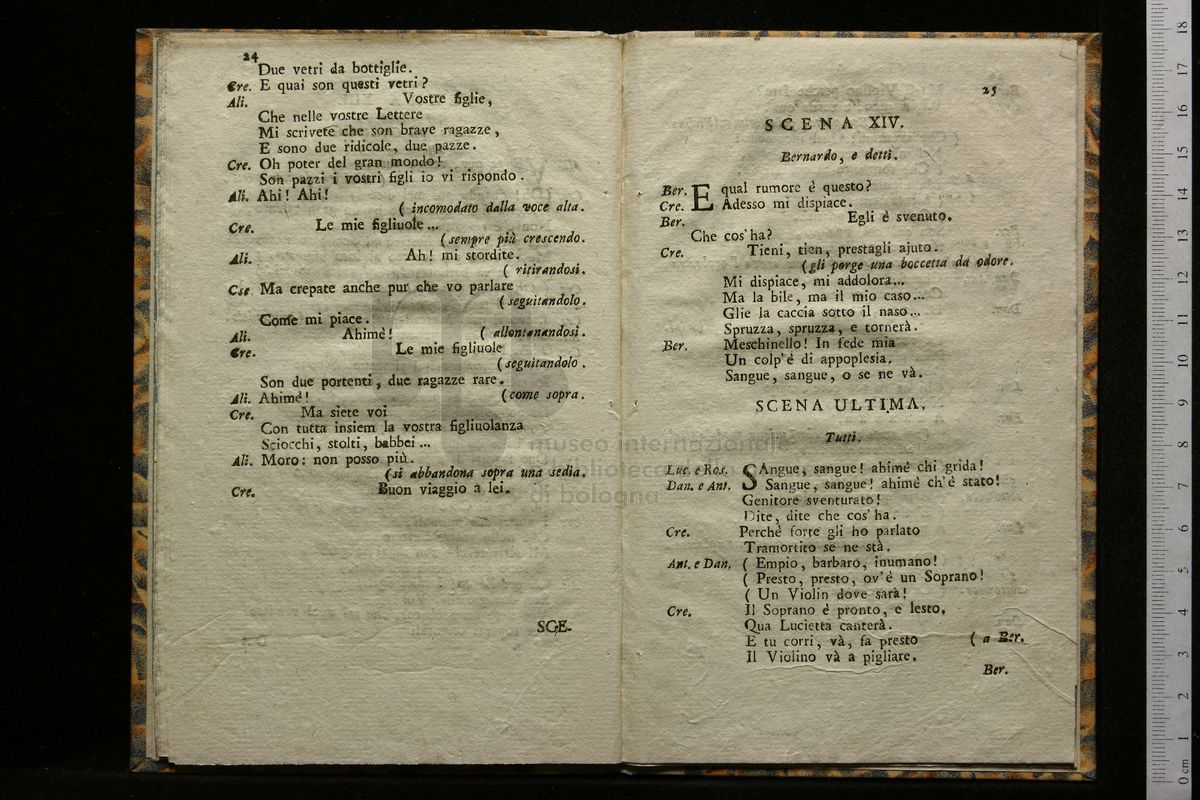 24
Due vetri da bottiglie.
Cre. E quai son questi vetri?
Ali. Vostre figlie,
Che nelle vostre Lettere
Mi scrivete che son brave ragazze,
E sono due ridicole, due pazze.
Cre. Oh poter del gran mondo!
Son pazzi i vostri figli io vi rispondo.
Ali. Ahi! Ahi!
( incomodato dalla voce alta.
Cre. Le mie figliuole...
(sempre più crescendo.
Ali. Ah! mi stordite.
( ritirandosi.
Cse Ma crepate anche pur che vo parlare
(seguitandolo.
Come mi piace.
Ali. Ahimè! ( allontanandosi.
Cre. Le mie figliuole
(seguitandolo.
Son due portenti, due ragazze rare.
Ali. Ahimè! (come sopra.
Cre. Ma siete voi
Con tutta insiem la vostra figliuolanza
Sciocchi, stolti, babbei...
Ali. Moro: non posso più.
(si abbandona sopra una sedia.
Cre. Buon viaggio a lei.
SCE-
25
SCENA XIV.
Bernardo, e detti.
Ber. E qual rumore è questo?
Cre. Adesso mi dispiace.
Ber. Egli è svenuto.
Che cos'ha?
Cre. Tieni, tien, prestagli ajuto.
(gli porge una boccetta da odore.
Mi dispiace, mi addolora...
Ma la bile, ma il mio caso...
Glie la caccia sotto il naso...
Spruzza, spruzza, e tornerà.
Ber. Meschinello! In fede mia
Un colp'è di appoplesia.
Sangue, sangue, o se ne và.
SCENA ULTIMA.
Tutti.
Luc. e Ros. SAngue, sangue! ahimè chi grida!
Dan. e Ant. Sangue, sangue! ahimè ch'è stato!
Genitore sventurato!
Dite, dite che cos'ha.
Cre. Perchè forte gli ho parlato
Tramortito se ne stà.
Ant. e Dan. ( Empio, barbaro, inumano!
( Presto, presto, ov'è un Soprano!
( Un Violin dove sarà!
Cre. Il Soprano è pronto, e lesto,
Qua Lucietta canterà.
E tu corri, và, fa presto ( a Ber.
Il Violino và a pigliare.
Ber.
museo internazionale
biblioteca
di bologna
0 cm 1 2 3 4 5 6 7 8 9 10 11 12 13 14 15 16 17 18